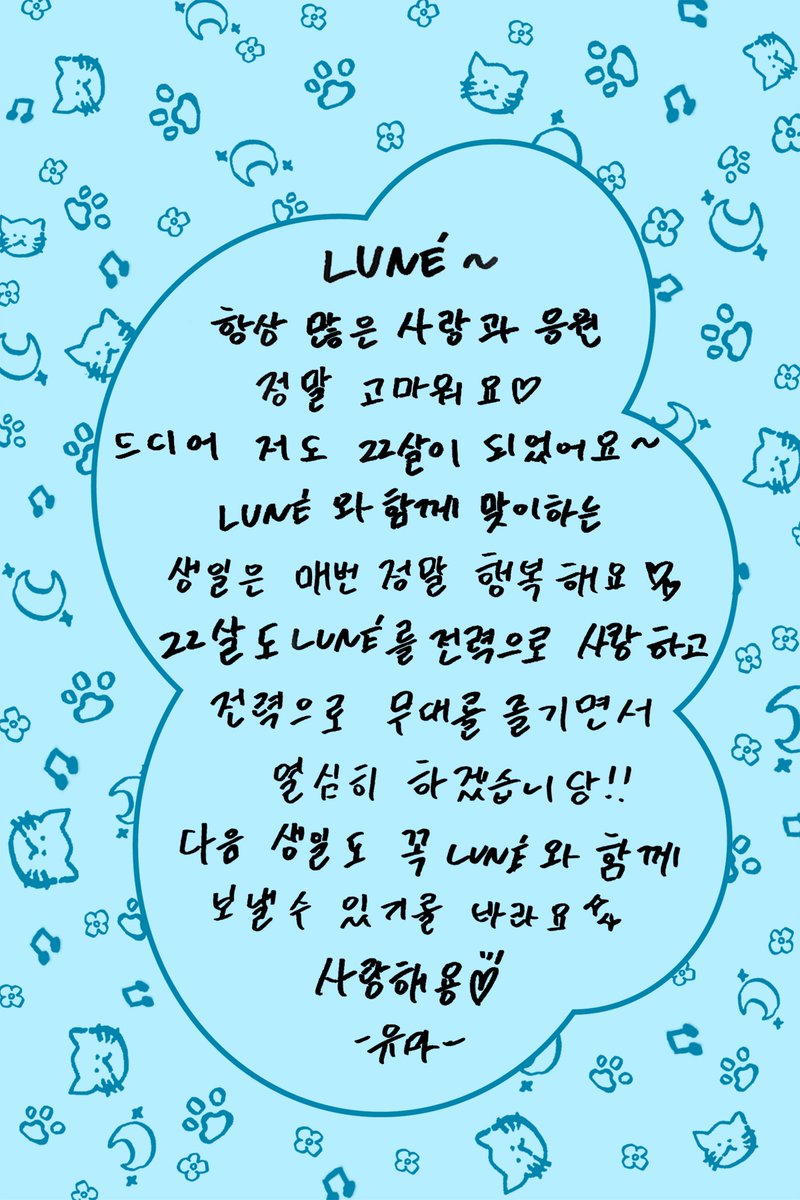 LUNÉ ~
항상 많은 사랑과 응원
정말 고마워요♡
드디어 저도 22살이 되었어요~
LUNÉ와 함께 맞이하는
생일은 매번 정말 행복해요
22살도 LUNÉ를 전력으로 사랑하고
전력으로 무대를 즐기면서
열심히 하겠습니당!!
다음 생일도 꼭 LUNÉ와 함께
보낼 수 있기를 바라요
사랑해용♡
-유마-